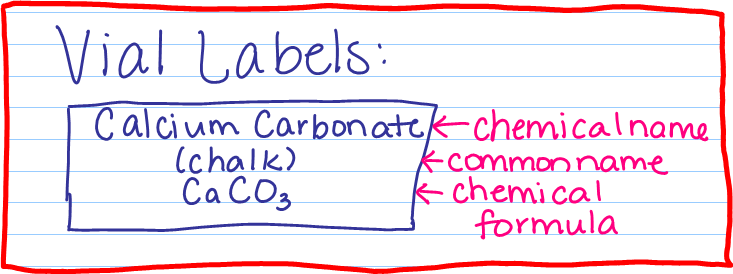 Vial Labels:
Calcium Carbonate ← chemical name
(chalk) ← common name
CaCO₃ ← chemical
formula